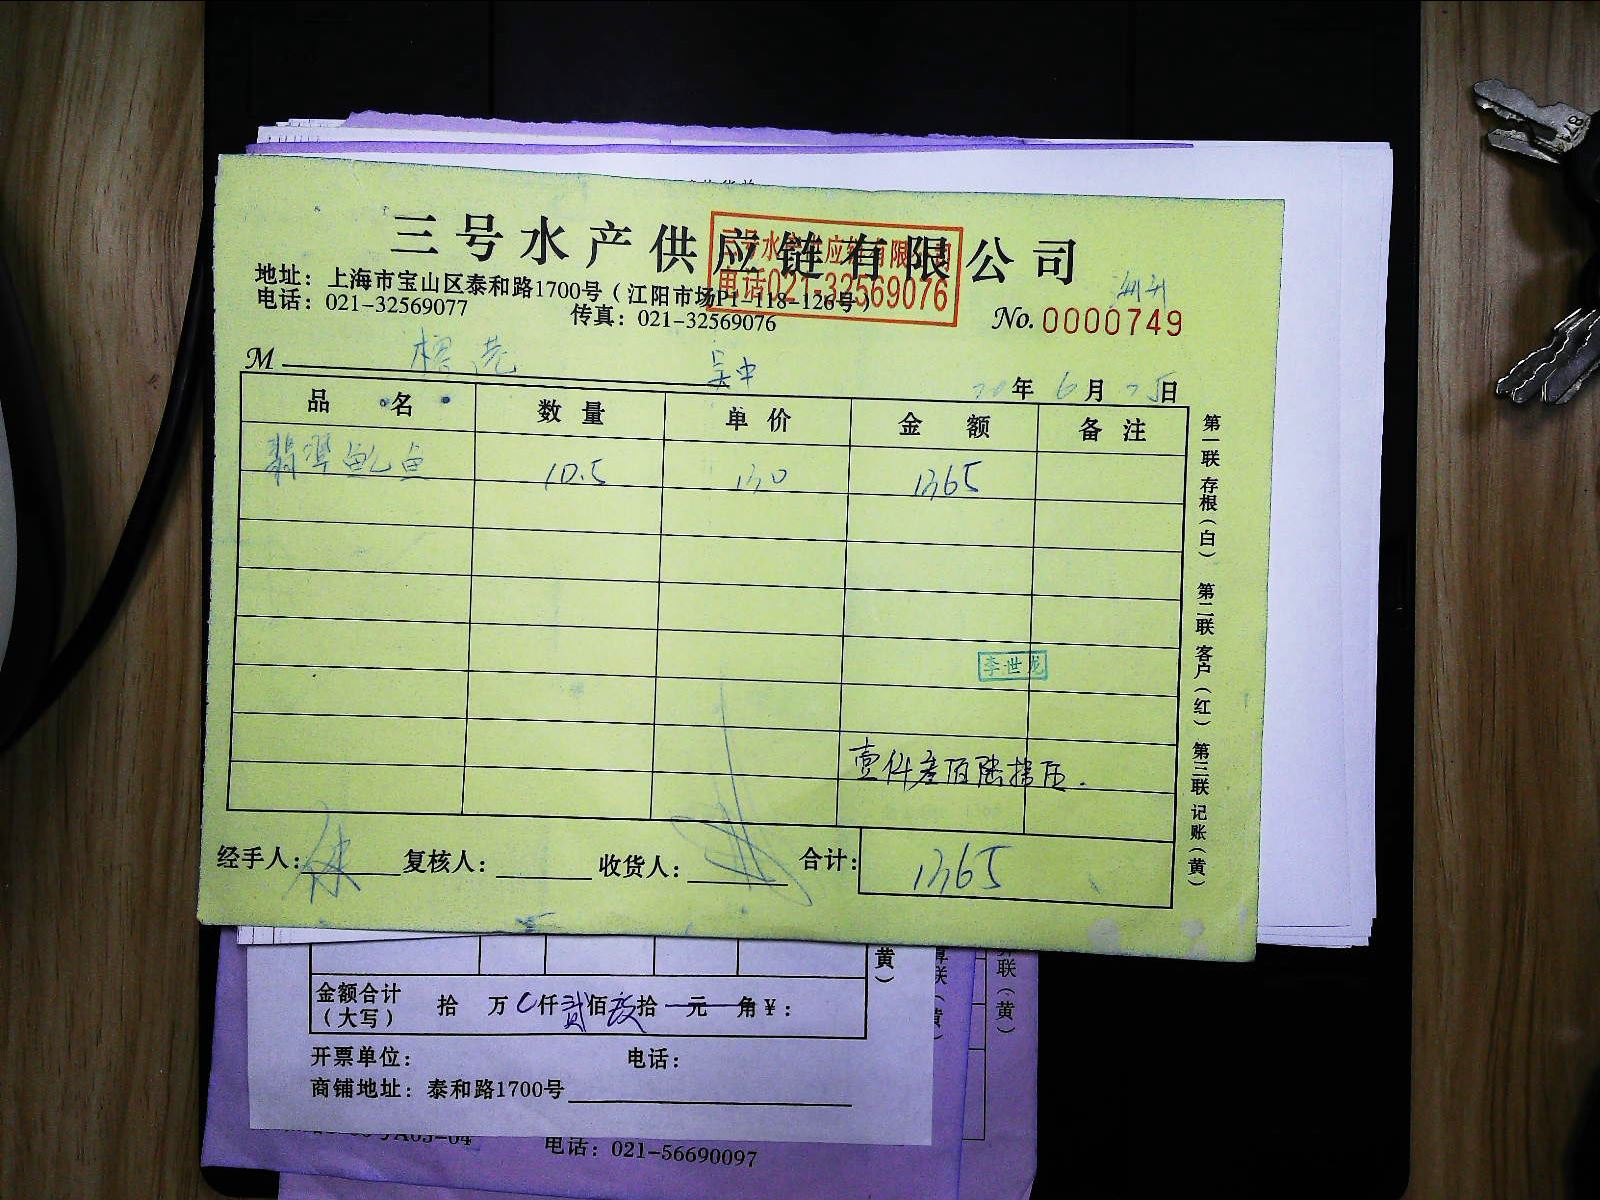 三号水产供应链有限公司
电话021-32569076
地址：上海市宝山区泰和路1700号（江阳市场P1-118-126号）
电话：021-32569077
传真：021-32569076
No. 0000749
M 吴中
20年6月25日
品名 数量 单价 金额 备注
翡翠鱿鱼 10.5 130 1365
李世龙
壹仟叁佰陆拾伍.
经手人： 复核人： 收货人： 合计：1365
第一联 存根（白） 第二联 客户（红） 第三联 记账（黄）
黄）
联（黄）
金额合计（大写） 拾 万 0仟贰佰玖拾 元 角 ¥：
开票单位： 电话：
商铺地址：泰和路1700号
电话：021-56690097